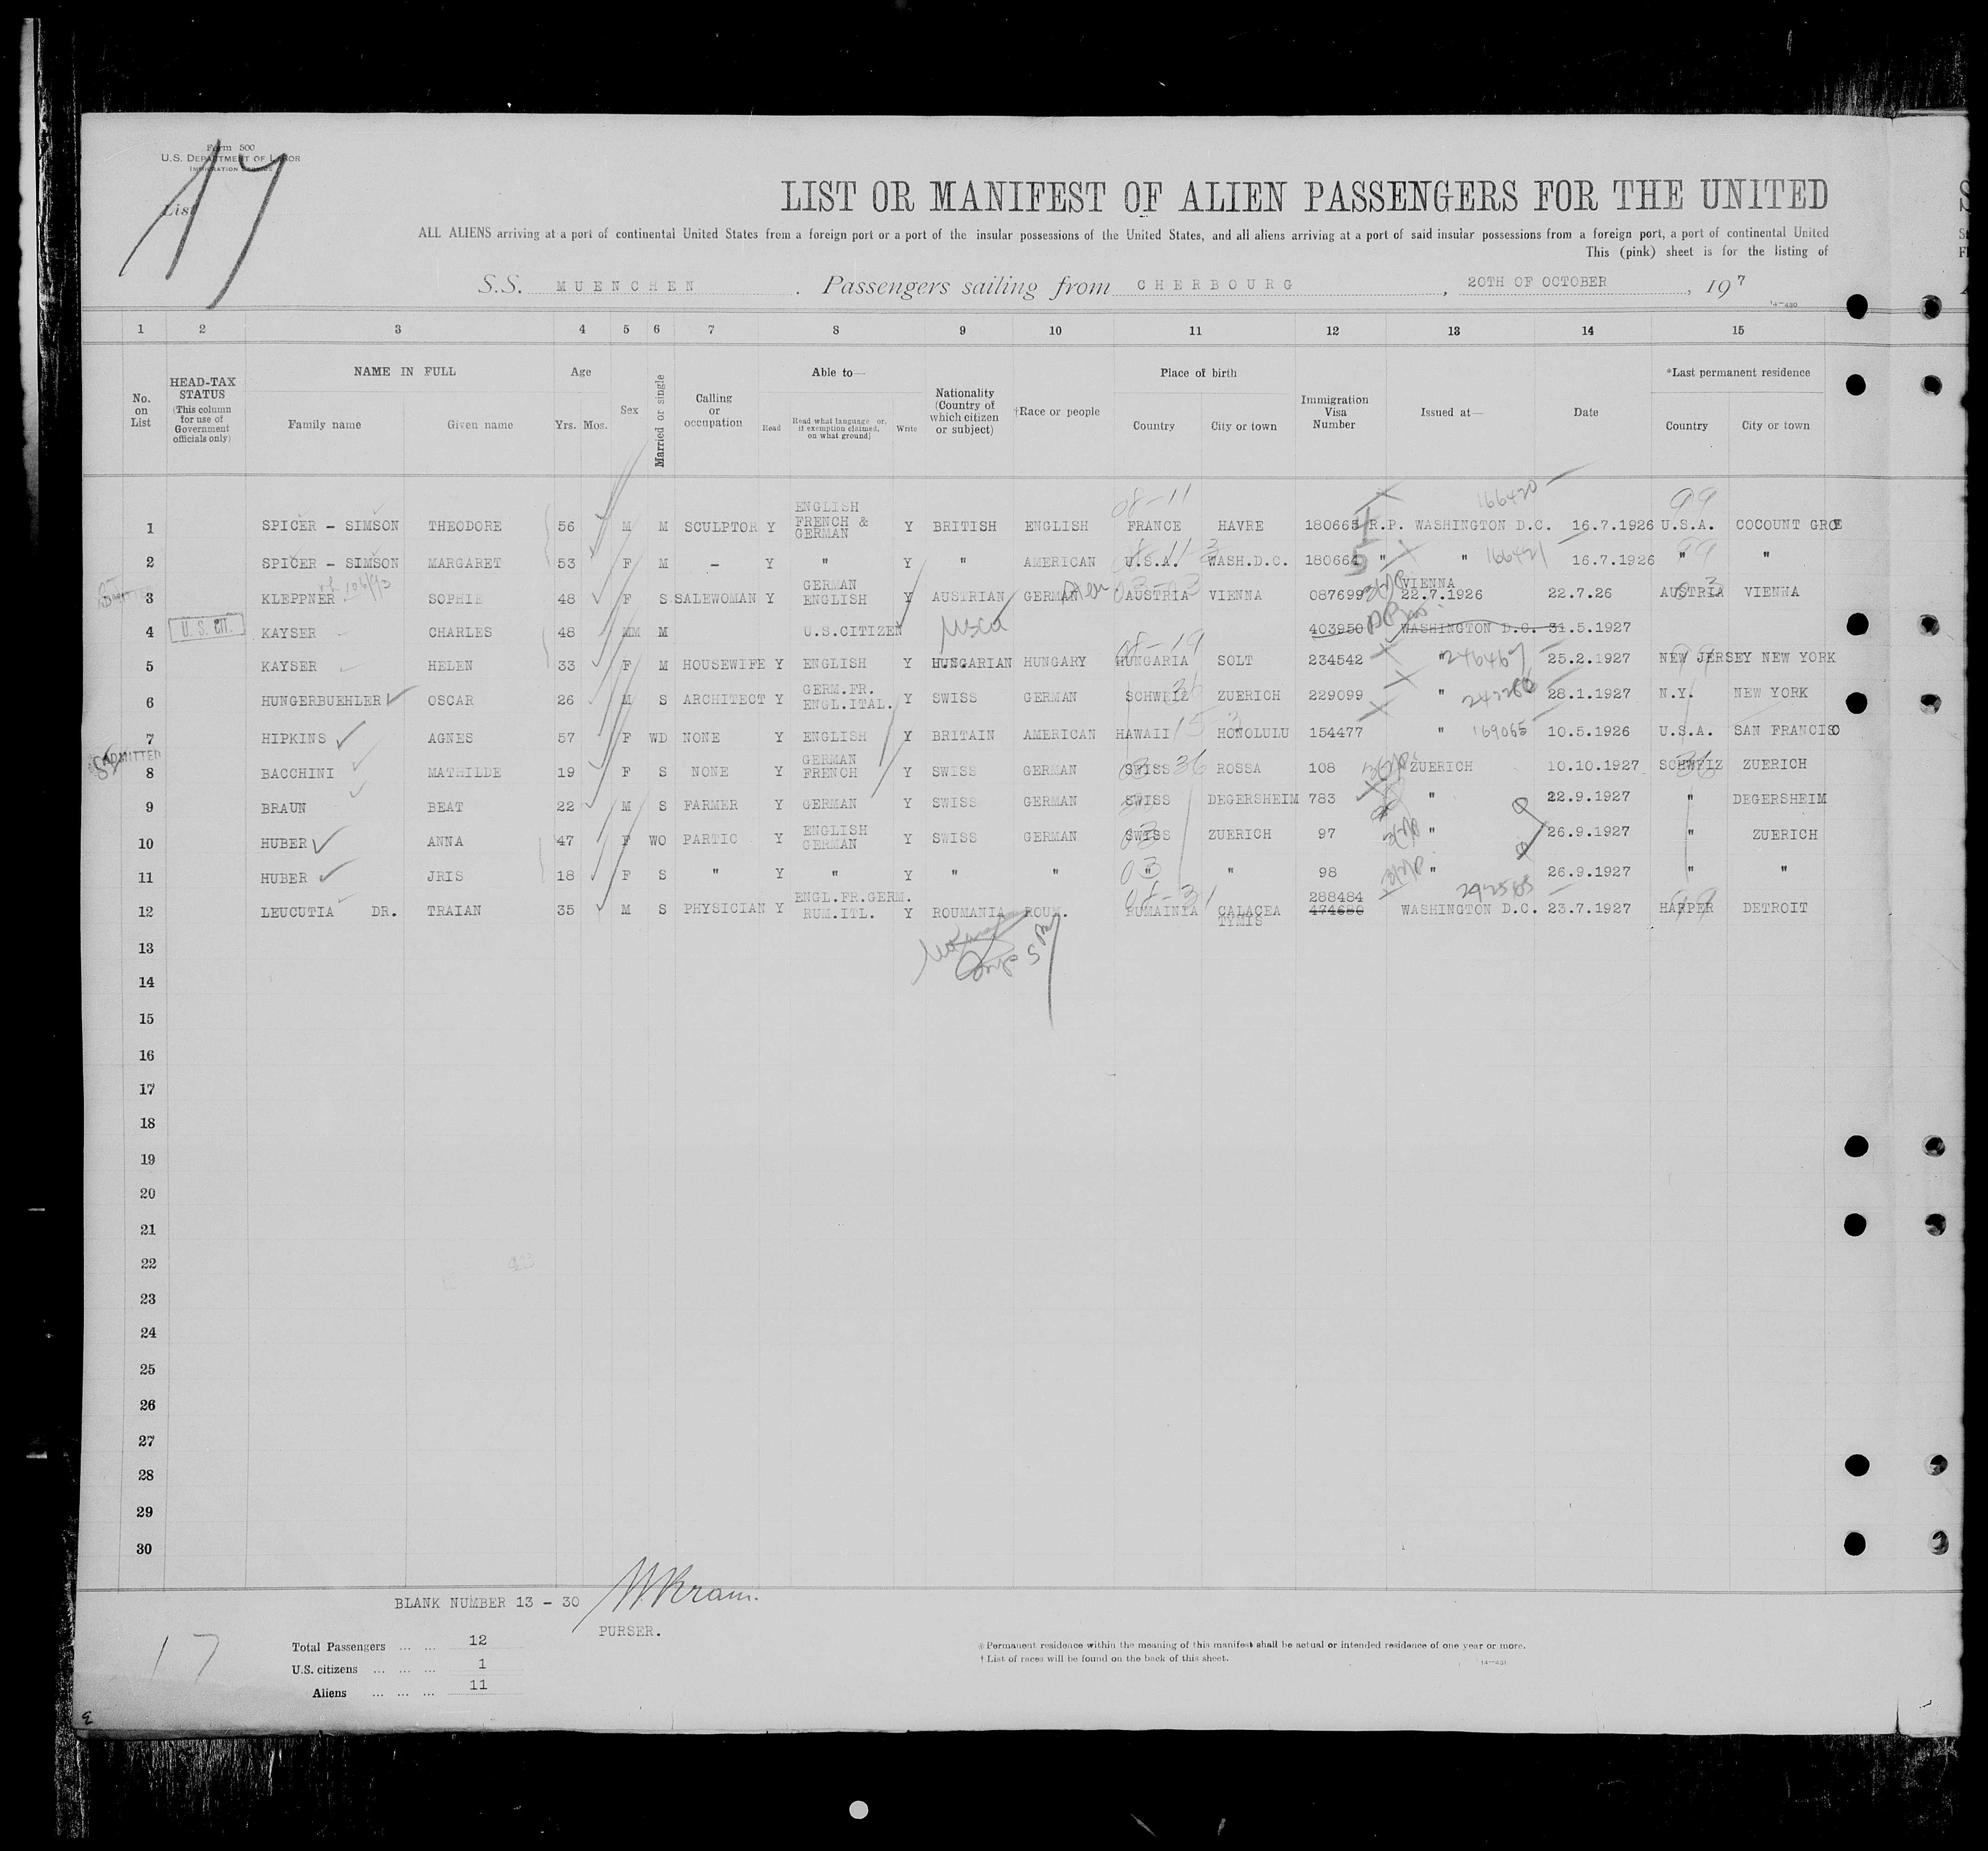 Form 500
U.S. DEPARTMENT OF LABOR
IMMIGRATION SERVICE
List
17
LIST OR MANIFEST OF ALIEN PASSENGERS FOR THE UNITED
ALL ALIENS arriving at a port of continental United States from a foreign port or a port of the insular possessions of the United States, and all aliens arriving at a port of said insular possessions from a foreign port, a port of continental United
This (pink) sheet is for the listing of
S.S. MUENCHEN . Passengers sailing from CHERBOURG , 20TH OF OCTOBER , 19 7
14—430
1 2 3 4 5 6 7 8 9 10 11 12 13 14 15
No. on List
HEAD-TAX STATUS (This column for use of Government officials only)
NAME IN FULL
Family name Given name
Age
Yrs. Mos.
Sex
Married or single
Calling or occupation
Able to—
Read
Read what language or, if exemption claimed, on what ground
Write
Nationality (Country of which citizen or subject)
†Race or people
Place of birth
Country City or town
Immigration Visa Number
Issued at—
Date
*Last permanent residence
Country City or town
08-11 166420 99
1 SPICER - SIMSON THEODORE 56 M M SCULPTOR Y ENGLISH FRENCH & GERMAN Y BRITISH ENGLISH FRANCE HAVRE 180665 R.P. WASHINGTON D.C. 16.7.1926 U.S.A. COCOUNT GROE
2 SPICER - SIMSON MARGARET 53 F M - Y " Y " AMERICAN U.S.A. WASH.D.C. 180664 " " 166421 16.7.1926 " "
3 KLEPPNER SOPHIE 48 F S SALEWOMAN Y GERMAN ENGLISH Y AUSTRIAN GERMAN AUSTRIA VIENNA 087699 VIENNA 22.7.1926 22.7.26 AUSTRIA VIENNA
4 U. S. CIT. KAYSER CHARLES 48 MM M U.S.CITIZEN USCA 403950 WASHINGTON D.C. 31.5.1927
5 KAYSER HELEN 33 F M HOUSEWIFE Y ENGLISH Y HUNGARIAN HUNGARY HUNGARIA 08-19 SOLT 234542 " 246467 25.2.1927 NEW JERSEY NEW YORK
6 HUNGERBUEHLER OSCAR 26 M S ARCHITECT Y GERM.FR. ENGL.ITAL. Y SWISS GERMAN SCHWEIZ ZUERICH 229099 " 28.1.1927 N.Y. NEW YORK
7 HIPKINS AGNES 57 F WD NONE Y ENGLISH Y BRITAIN AMERICAN HAWAII HONOLULU 154477 " 169065 10.5.1926 U.S.A. SAN FRANCISO
ADMITTED
8 BACCHINI MATHILDE 19 F S NONE Y GERMAN FRENCH Y SWISS GERMAN SWISS 36 ROSSA 108 ZUERICH 10.10.1927 SCHWEIZ ZUERICH
9 BRAUN BEAT 22 M S FARMER Y GERMAN Y SWISS GERMAN SWISS DEGERSHEIM 783 " 22.9.1927 " DEGERSHEIM
10 HUBER ANNA 47 F WO PARTIC Y ENGLISH GERMAN Y SWISS GERMAN SWISS ZUERICH 97 " 26.9.1927 " ZUERICH
11 HUBER JRIS 18 F S " Y " Y " " " " 98 " 26.9.1927 " "
12 LEUCUTIA DR. TRAIAN 35 M S PHYSICIAN Y ENGL.FR.GERM. RUM.ITL. Y ROUMANIA ROUM. RUMAINIA 08-31 CALACEA TYMIS 288484 474680 WASHINGTON D.C. 23.7.1927 HARPER DETROIT
13
14
15
16
17
18
19
20
21
22
23
24
25
26
27
28
29
30
BLANK NUMBER 13 - 30
W. Kram.
PURSER.
17
Total Passengers ... ... 12
U.S. citizens ... ... ... 1
Aliens ... ... ... 11
* Permanent residence within the meaning of this manifest shall be actual or intended residence of one year or more.
† List of races will be found on the back of this sheet.
14—431